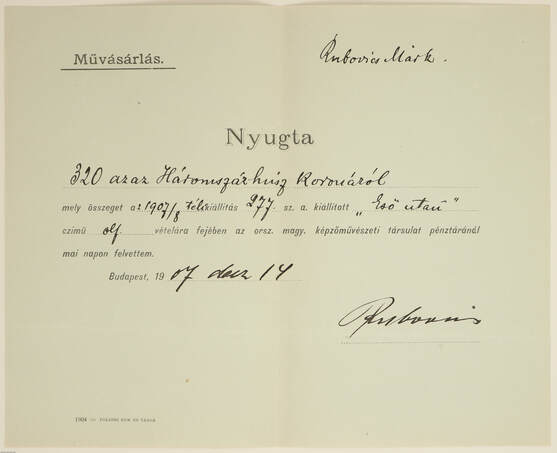 Művásárlás.
Rubovics Márk.
Nyugta
320 azaz Háromszázhúsz Koronáról
mely összeget az 1907/8 Téli kiállitás 277. sz. a. kiállitott „Eső után"
czimű olf. vételára fejében az orsz. magy. képzőművészeti társulat pénztáránál
mai napon felvettem.
Budapest, 1907 decz 14
Rubovics